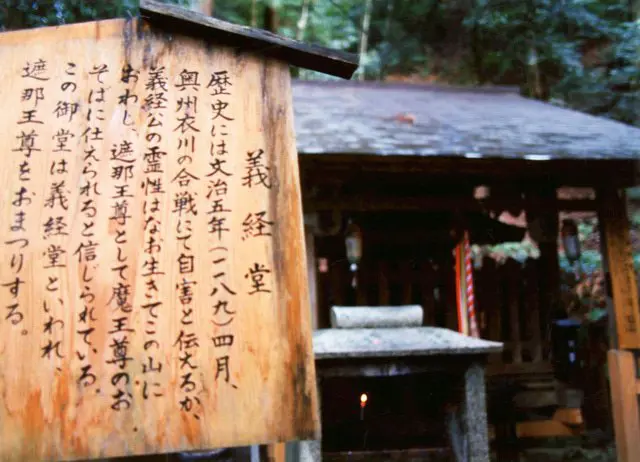 義経堂
歴史には文治五年(一一八九)四月、
奥州衣川の合戦にて自害と伝えるか、
義経公の霊性はなお生きてこの山に
おわし、遮那王尊として魔王尊のお
そばに仕えられると信じられている。
この御堂は義経堂といわれ、
遮那王尊をおまつりする。